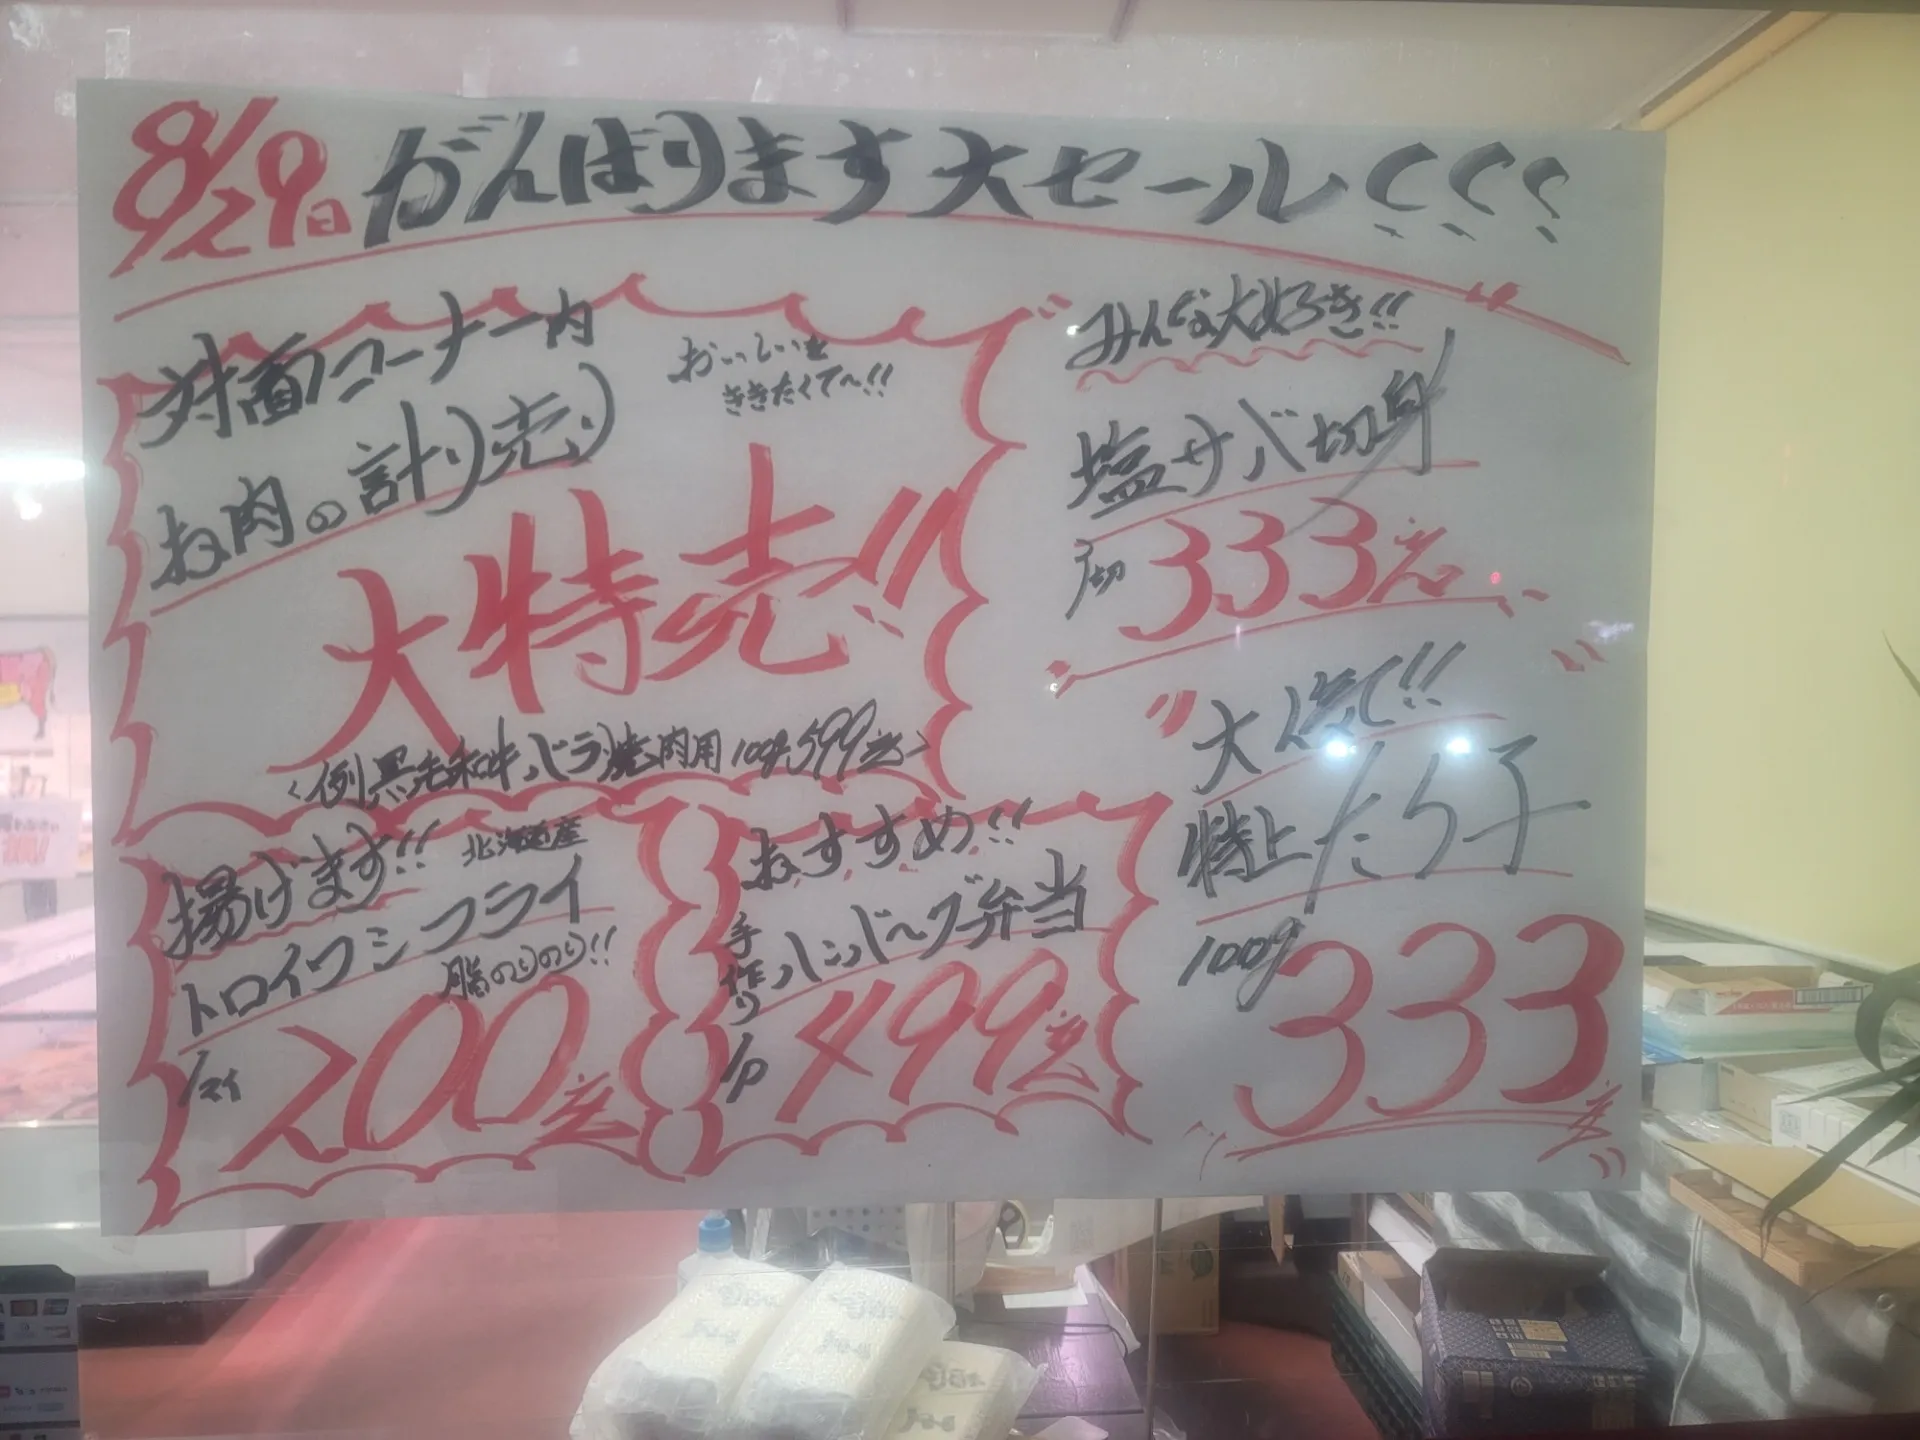 8/29日 がんばります大セール!!!
対面コーナー内
お肉の計り売り
おいしいを
ききたくて〜!!
大特売!!
<例 黒毛和牛バラ焼肉用100g 599>
揚げます!! 北海道産
トロイワシフライ
脂のりのり!!
1マイ 200
おすすめ!!
手作り ハンバーグ弁当
1P 499
みんな大好き!!
塩サバ切身
1切 333
大人気て!!
特上たら子
100g
333